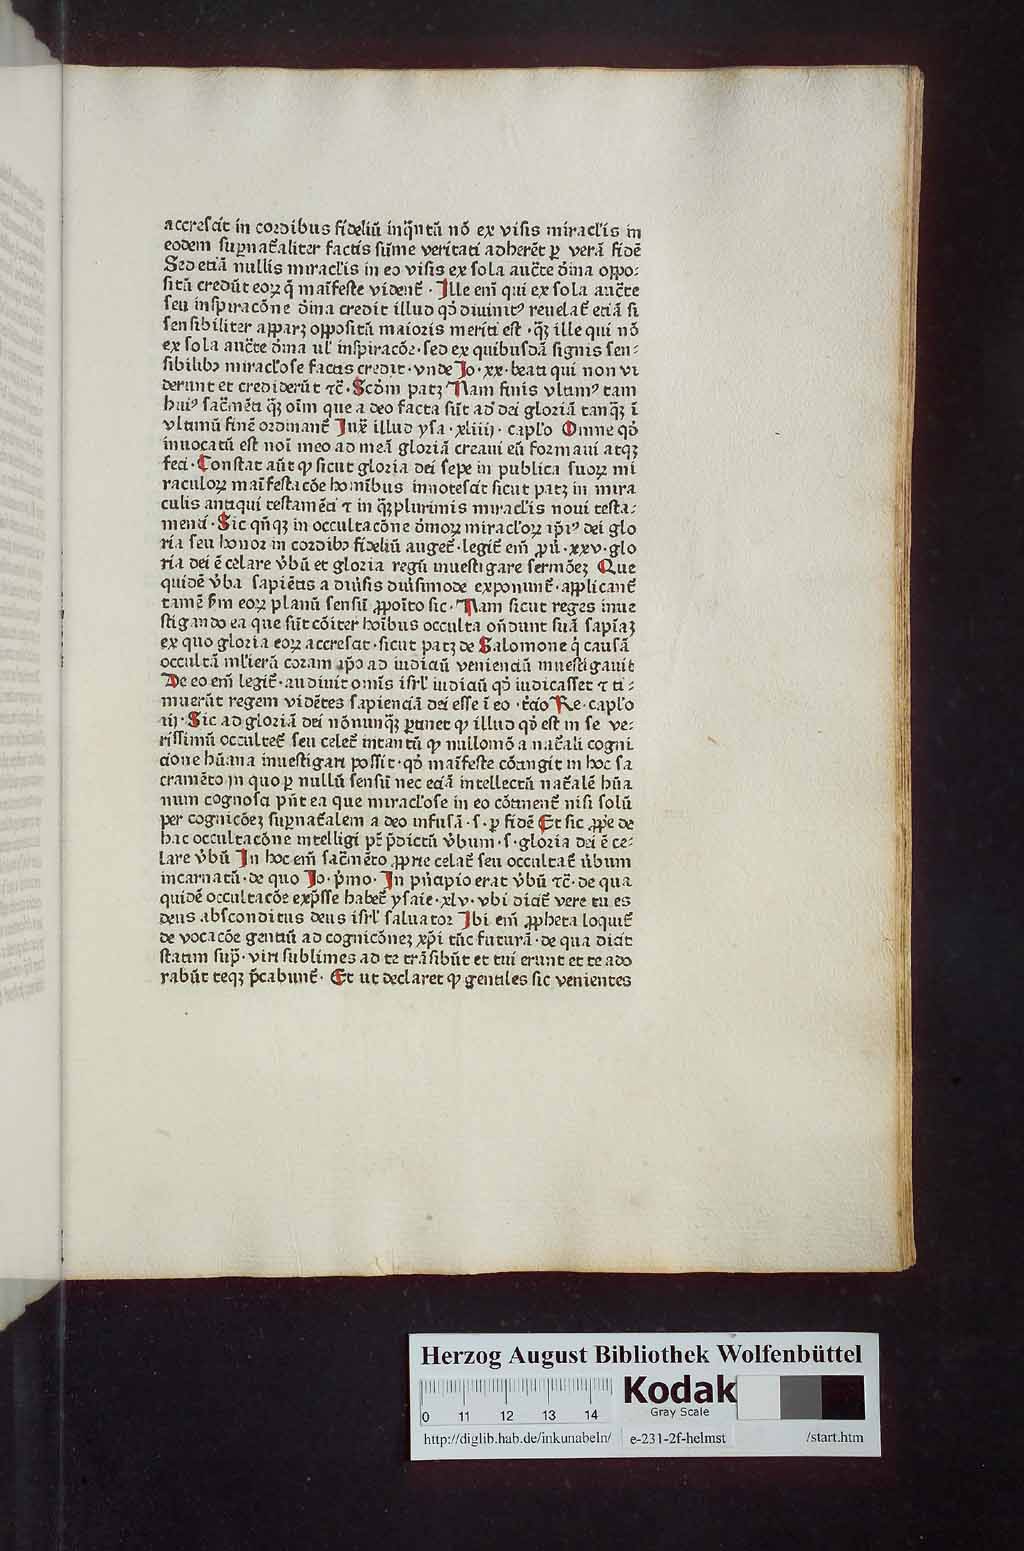 accrescit in cordibus fideliū inq̄ntū nō ex visis miracl̓is in
eodem sup̲nat̓aliter factis sūme veritati adherēt p̲ verā fidē
Sed etiā nullis miracl̓is in eo visis ex sola auc̄te d̓ina oppo⸗
sitū credūt eoꝝ q̄ maīfeste vident̓ · Ille eni̅ qui ex sola auc̄te
seu inspiracōne d̓ina credit illud qd̓ diuinitꝰ reuelat̓ etiā si
sensibiliter apparꝫ oppositū maioris meriti est · qꝫ ille qui nō
ex sola auc̄te d̓ina ul̓ inspiracōe · sed ex quibusdā signis sen⸗
sibilibꝫ miracl̓ose factis credit · vnde Jo · xx · beati qui non vi
derunt et crediderūt ⁊c̄ · Scd̓m patꝫ Nam finis vltimꝰ tam
huiꝰ sac̄mēti qꝫ oīm que a deo facta sūt ad dei gloriā tanqꝫ ī
vltimū finē ordinant̓ Jux̄ illud ysa · xliiij · capl̓o Omne qd̓
inuocatū est noi̅ meo ad meā gloriā creaui eū formaui atqꝫ
feci · Constat aūt ꝙ sicut gloria dei sepe in publica suoꝝ mi
raculoꝝ maīfestacōe homībus innotescit sicut patꝫ in mira
culis antiqui testamēti ⁊ in qꝫplurimis miracl̓is noui testa⸗
menti · Sic qn̄qꝫ in occultacōne d̓inoꝝ miracl̓oꝝ ip̄iꝰ dei glo
ria seu honor in cordibꝫ fideliū auget̓ · legit̓ em̄ ꝓu̓ · xxv · glo
ria dei ē celare v̓bū et gloria regū inuestigare sermōeꝫ Que
quidē v̓ba sapiētis a diu̓sis diu̓simode exponunt̓ · applicant̓
tamē s̓m eoꝝ planū sensū ꝓpoīto sic · Nam sicut reges inue
stigando ea que sūt cōiter hoībus occulta on̄dunt suā sapīaꝫ
ex quo gloria eoꝝ accrescit · sicut patꝫ de Salomone q̓ causā
occultā ml̓ierā coram ip̄o ad iudiciū venienciū inuestigauit
De eo em̄ legit̓ · audiuit omīs isrl̓ iudiciū qd̓ iudicasset ⁊ ti⸗
muerūt regem vidētes sapienciā dei esse ī eo · t̓cio Re · capl̓o
iij · Sic ad gloriā dei nōnunqꝫ p̲tinet ꝙ illud qd̓ est in se ve⸗
rissimū occultet̓ seu celet̓ intantū ꝙ nullomō a nat̓ali cogni
cione hūana inuestigari possit · qd̓ maīfeste cōtingit in hoc sa
cramēto in quo p̲ nullū sensū nec eciā intellectū nat̓alē hūa
num cognosci pn̄t ea que miracl̓ose in eo cōtinent̓ nisi solū
per cognicōeꝫ sup̲nat̓alem a deo infusā · s · p̲ fidē Et sic ꝓp̓e de
hac occultacōne intelligi pt̄ p̄dictū v̓bum · s · gloria dei ē ce⸗
lare v̓bū In hoc em̄ sac̄mēto ꝓprie celat̓ seu occultat̓ v̓bum
incarnatū · de quo Jo · p̓mo · In pn̓cipio erat v̓bū ⁊c̄ · de qua
quidē occultacōe exp̄sse habet̓ ysaie · xlv · vbi dicit̓ vere tu es
deus absconditus deus isrl̓ saluator Ibi em̄ ꝓpheta loquit̓
de vocacōe gentiū ad cognicōneꝫ xp̄i tūc futurā · de qua dicit
statim sup̄ · viri sublimes ad te trāsibūt et tui erunt et te ado
rabūt teqꝫ p̄cabunt̓ · Et ut declaret ꝙ gentiles sic venientes
Herzog August Bibliothek Wolfenbüttel
0 11 12 13 14
Kodak
Gray Scale
http://diglib.hab.de/inkunabeln/ e-231-2f-helmst /start.htm